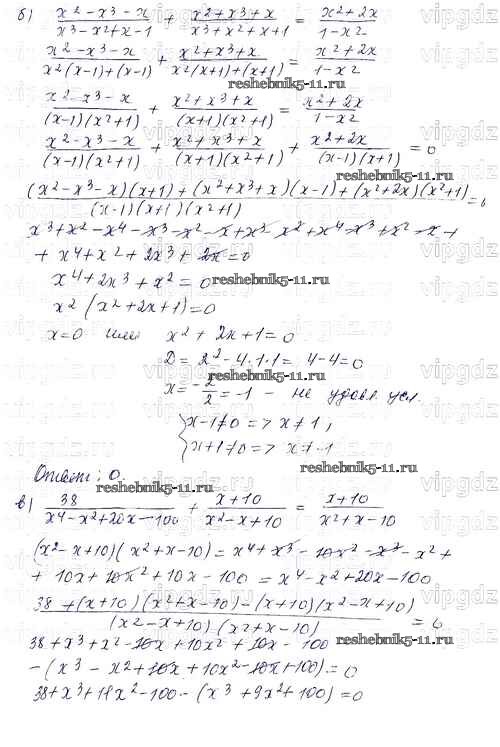 б) (x² - x³ - x)/(x³ - x² + x - 1) + (x² + x³ + x)/(x³ + x² + x + 1) = (x² + 2x)/(1 - x²)
(x² - x³ - x)/(x²(x-1)+(x-1)) + (x² + x³ + x)/(x²(x+1)+(x+1)) = (x² + 2x)/(1 - x²)
reshebnik5-11.ru
(x² - x³ - x)/((x-1)(x²+1)) + (x² + x³ + x)/((x+1)(x²+1)) = (x² + 2x)/(1 - x²)
(x² - x³ - x)/((x-1)(x²+1)) + (x² + x³ + x)/((x+1)(x²+1)) + (x² + 2x)/((x-1)(x+1)) = 0
reshebnik5-11.ru
((x² - x³ - x)(x+1) + (x² + x³ + x)(x-1) + (x² + 2x)(x²+1))/((x-1)(x+1)(x²+1)) = 0
x³ + x² - x⁴ - x³ - x² - x + x³ - x² + x⁴ - x³ + x² - x +
+ x⁴ + x² + 2x³ + 2x = 0
x⁴ + 2x³ + x² = 0
reshebnik5-11.ru
x²(x² + 2x + 1) = 0
x = 0 или x² + 2x + 1 = 0
D = 2² - 4·1·1 = 4 - 4 = 0
reshebnik5-11.ru
x = -2/2 = -1 - не удовл. усл.
{ x - 1 ≠ 0 => x ≠ 1,
x + 1 ≠ 0 => x ≠ -1
Ответ: 0.
reshebnik5-11.ru
в) 38/(x⁴ - x² + 20x - 100) + (x+10)/(x² - x + 10) = (x+10)/(x² + x - 10)
(x² - x + 10)(x² + x - 10) = x⁴ + x³ - 10x² - x³ - x² +
+ 10x + 10x² + 10x - 100 = x⁴ - x² + 20x - 100
reshebnik5-11.ru
(38 + (x+10)(x² + x - 10) - (x+10)(x² - x + 10))/((x² - x + 10)(x² + x - 10)) = 0
38 + x³ + x² - 10x + 10x² + 10x - 100
reshebnik5-11.ru
- (x³ - x² + 10x + 10x² - 10x + 100) = 0
38 + x³ + 11x² - 100 - (x³ + 9x² + 100) = 0
reshebnik5-11.ru
vipgdz